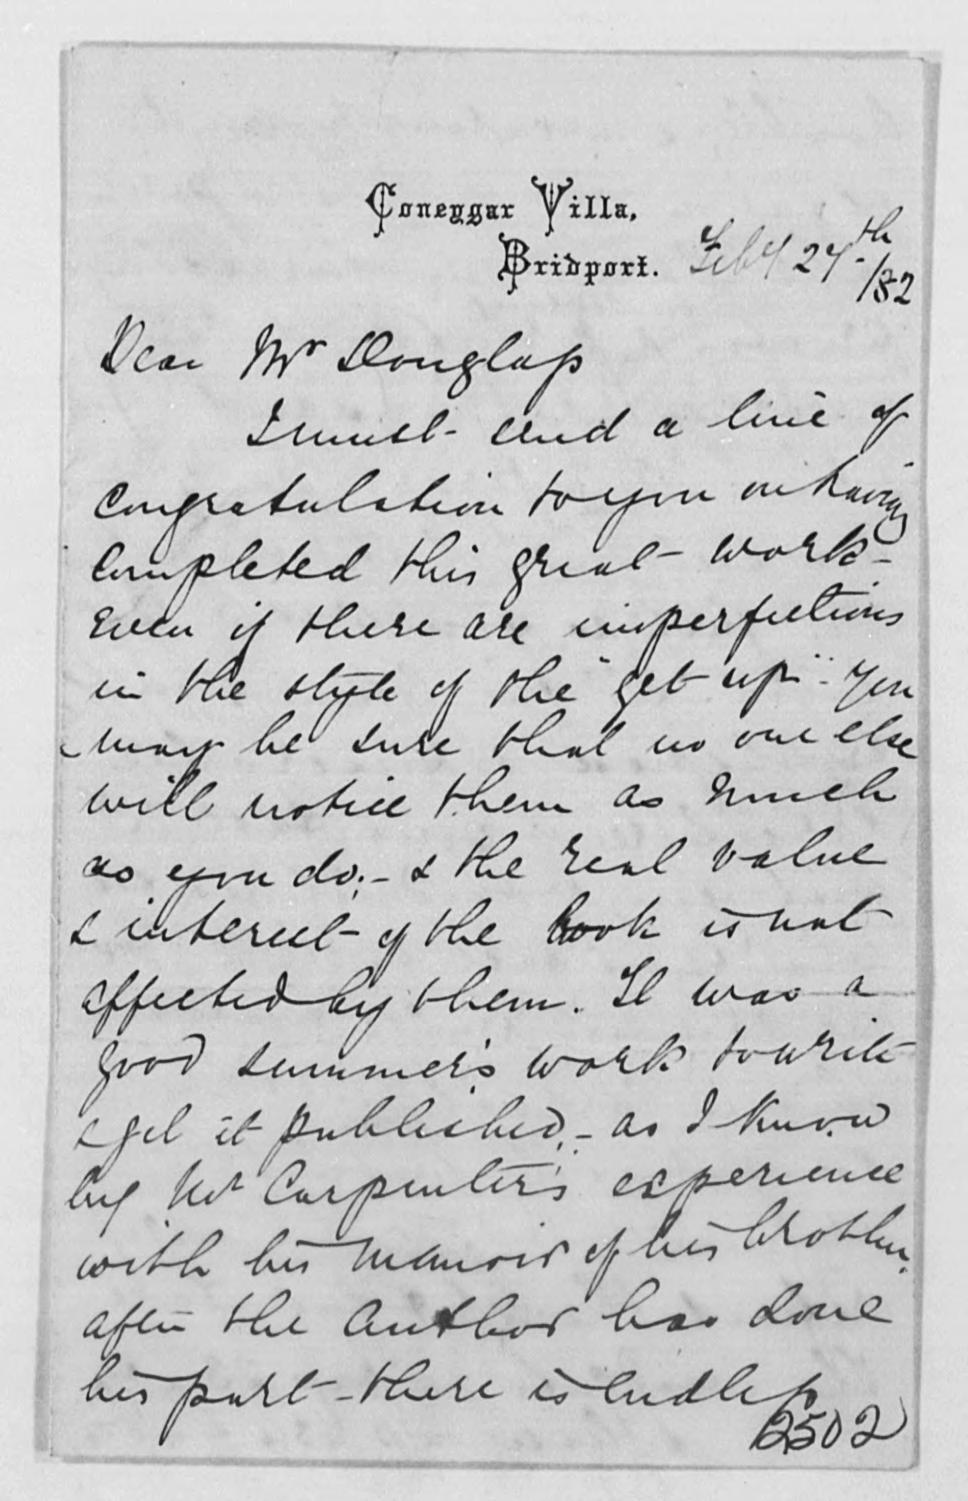 Coneygar Villa,
Bridport. Feby 27th
/82
Dear Mr Douglass
I must send a line of
congratulation to you on having
completed this great work -
Even if there are imperfections
in the style of the "get up" - you
may be sure that no one else
will notice them as much
as you do; - & the real value
& interest of the book is not
affected by them. It was a
good summer's work to write
& get it published, - as I know
by Mr Carpenter's experience
with his memoir of his brother,
after the Author has done
his part - there is endless
2502